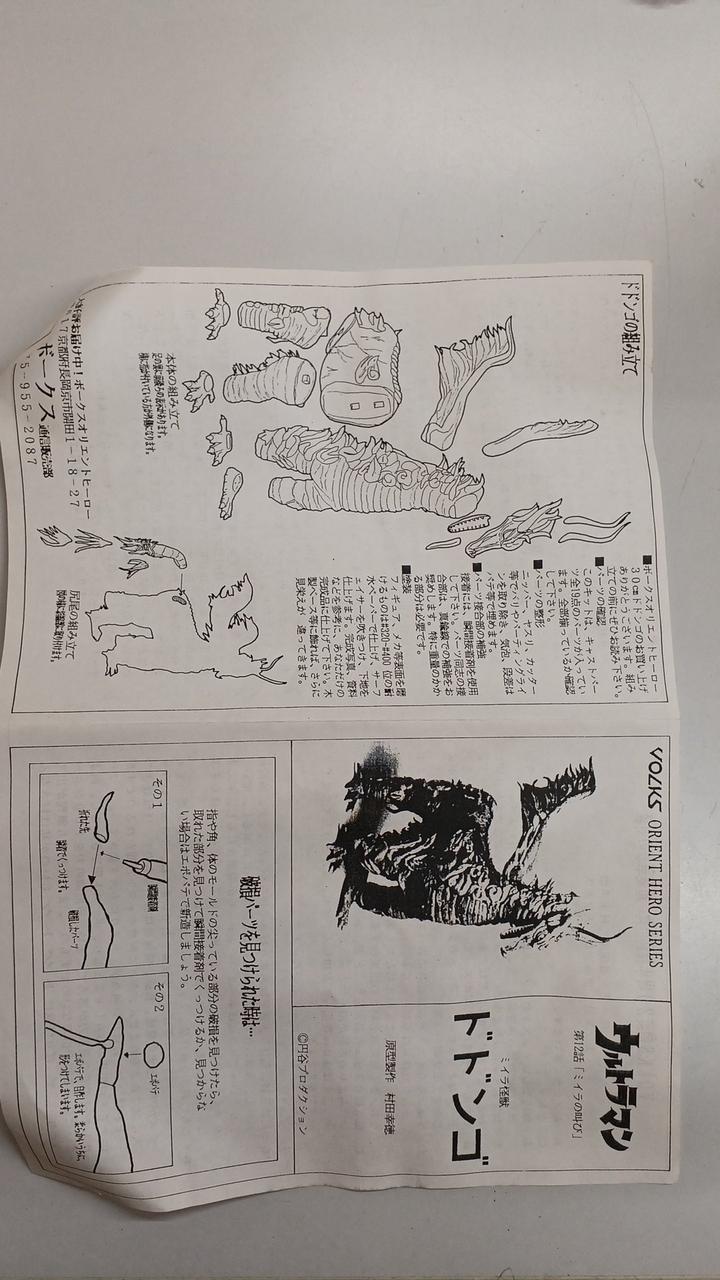 VOLKS ORIENT HERO SERIES
ウルトラマン
第12話「ミイラの叫び」
ミイラ怪獣
ドドンゴ
原型製作 村田幸徳
©円谷プロダクション
破損パーツを見つけられた時は…
指や角 体のモールドの尖っている部分の破損を見つけたら、
取れた部分を見つけて瞬間接着剤でくっつけるか、見つからな
い場合はエポパテで新造しましょう。
その1
瞬間接着剤
折れた先
破損したパーツ
瞬着でくっつけます。
その2
エポパテ
エポパテで、自作します。柔らかいうちに、
形をつけてしまいます。
ドドンゴの組み立て
■ボークスオリエントヒーロー
30cmドドンゴのお買い上げ
ありがとうございます。組み
立ての前にぜひお読み下さい。
■パーツの確認
このキットは、キャストパー
ツ全19点のパーツが入ってい
ます。全部揃っているか確認
して下さい。
■パーツの整形
ニッパー、ヤスリ、カッター
等でバリやパーティングライ
ンを取り除き 気泡、段差は
パテ等で埋めます。
■パーツ接合部の補強
接着には、瞬間接着剤を使用
して下さい。パーツ同志の接
合部は、真鍮線での補強をお
奨めします。特に重量のかか
る部分は必要です。
■塗装
フィギュア、メカ等表面を磨
けるものは#320~#400 位の耐
水ペーパーで仕上げ、サーフ
ェイサーを吹きつけ、下地を
仕上げます。完成写真、資料
などを参考に、あなただけの
完成品に仕上げて下さい。木
製ベース等に飾れば、さらに
見栄えが 違ってきます。
本体の組み立て
尻尾の組み立て
お届け中!ボークスオリエントヒーロー
17京都府長岡京市開田1-18-27
ボークス通信販売部
75-955-2087